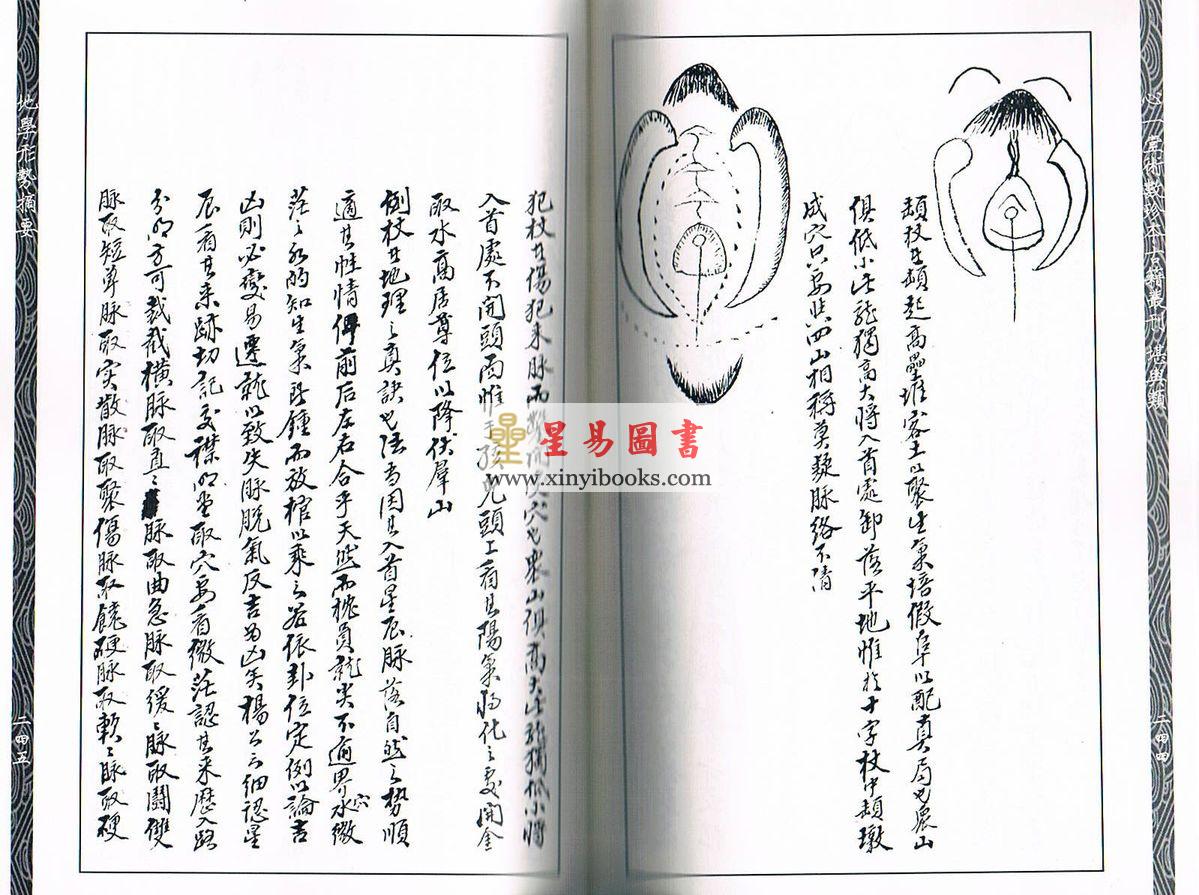 心一堂術數珍本古籍叢刊 堪輿類
二四四
頓杖者頓起高壘堆客土以聚生氣培假阜以配真局也眾山
俱低小此龍獨高大將入首處卸落平地惟於十字杖中頓墩
成穴只要與四山相稱莫疑脉絡不清
犯杖者傷犯來脉而 開 穴也眾山俱高大此龍獨低小將
入首處不開頭面惟于 兒頭上看其陽氣 化之處開金
取水高居尊位以降伏群山
倒杖者地理之真訣也法當因其入首星辰脉落自然之勢順
適其性情 前后左右合乎天然而 員就尖不 界水微
茫之 的知生氣所鍾而放棺以乘之若依卦位定例以論吉
凶則必變易遷就以致失脉脫氣反吉為凶矣楊公云細認星
辰看其來跡切記交襟明堂取穴要看微茫認其來歷入路
分明方可裁截橫脉取直直脉取曲急脉取緩緩脉取鬪雙
脉取短單脉取实散脉取聚傷脉取饒硬脉取軟軟脉取硬
地學形勢摘要
二四五
星易圖書
www.xinyibooks.com